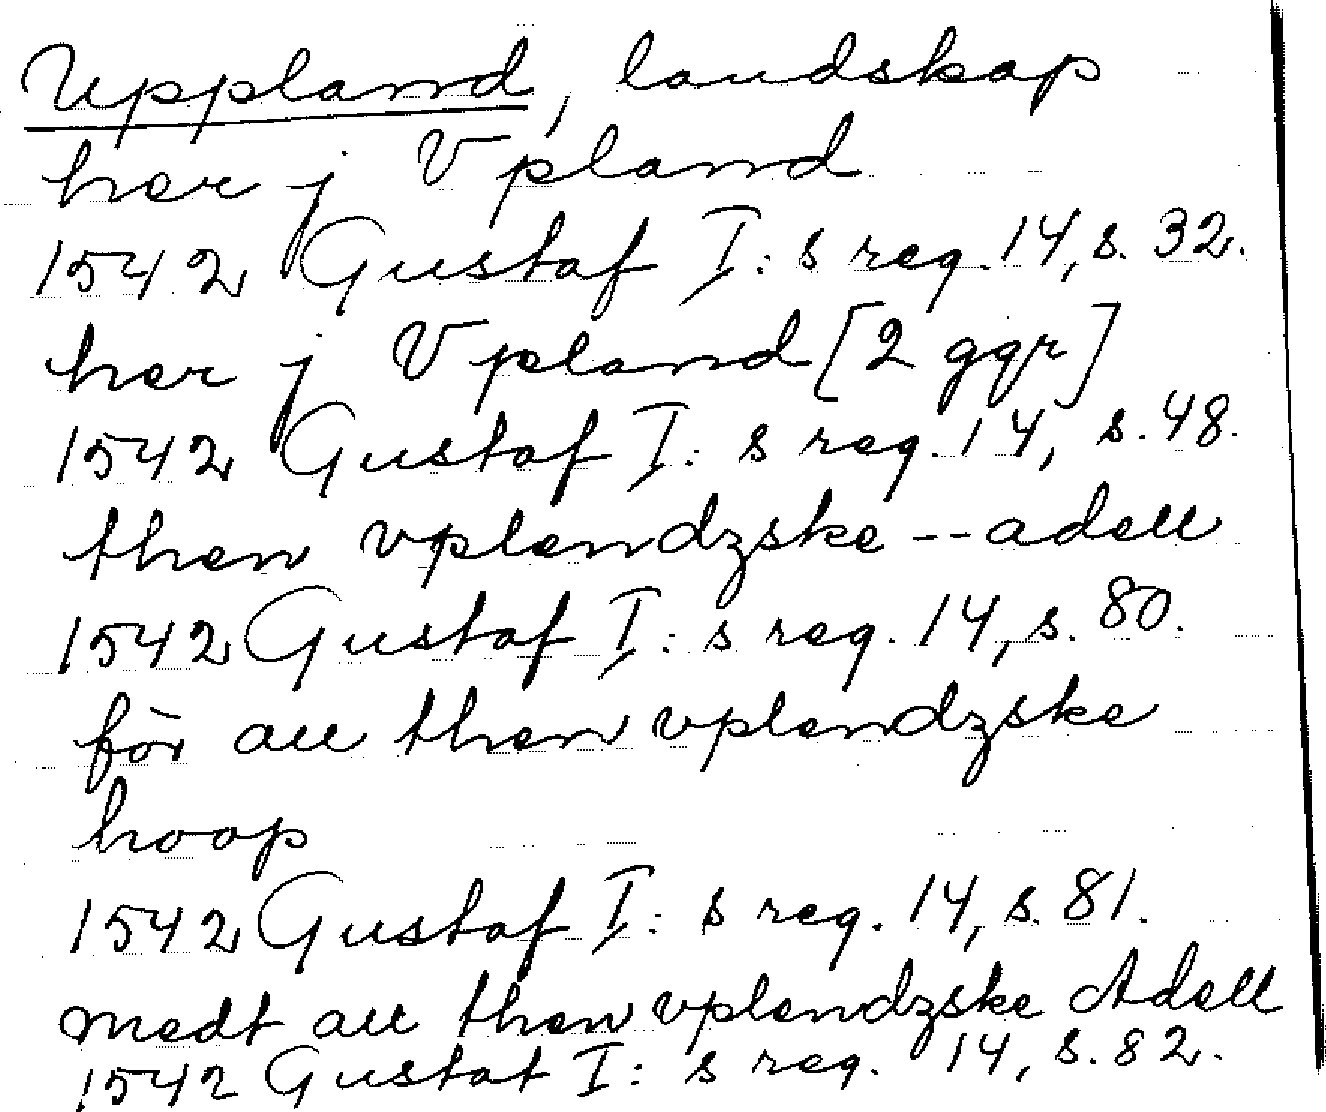 Uppland, landskap
her j Vpland
1542 Gustaf I:s reg. 14, s. 32.
her j Vpland [2 ggr]
1542 Gustaf I:s reg. 14, s. 48.
then vplendzske -- adell
1542 Gustaf I:s reg. 14, s. 80.
för all then vplendzske
hoop
1542 Gustaf I:s reg. 14, s. 81.
medt all then vplendzske Adell
1542 Gustaf I:s reg. 14, s. 82.